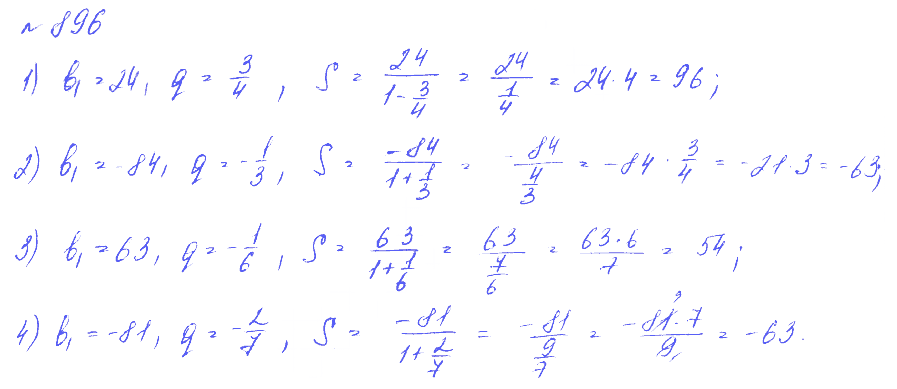 № 896
1) b₁ = 24, q = 3/4, S = 24/(1 - 3/4) = 24/(1/4) = 24 · 4 = 96;
2) b₁ = -84, q = -1/3, S = -84/(1 + 1/3) = -84/(4/3) = -84 · 3/4 = -21 · 3 = -63;
3) b₁ = 63, q = -1/6, S = 63/(1 + 1/6) = 63/(7/6) = (63 · 6)/7 = 54;
4) b₁ = -81, q = -2/7, S = -81/(1 + 2/7) = -81/(9/7) = -(81 · 7)/9 = -63.